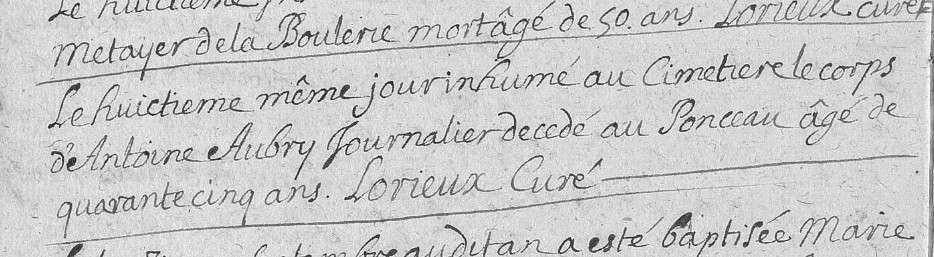 Le huictieme
Métayer de la Boulerie mort âgé de 50. ans. Lorieux curé
Le huictieme même jour inhumé au Cimetiere le corps
d'Antoine Aubry Journalier decedé au Ponceau âgé de
quarante cinq ans. Lorieux Curé
audit an a esté baptisée Marie